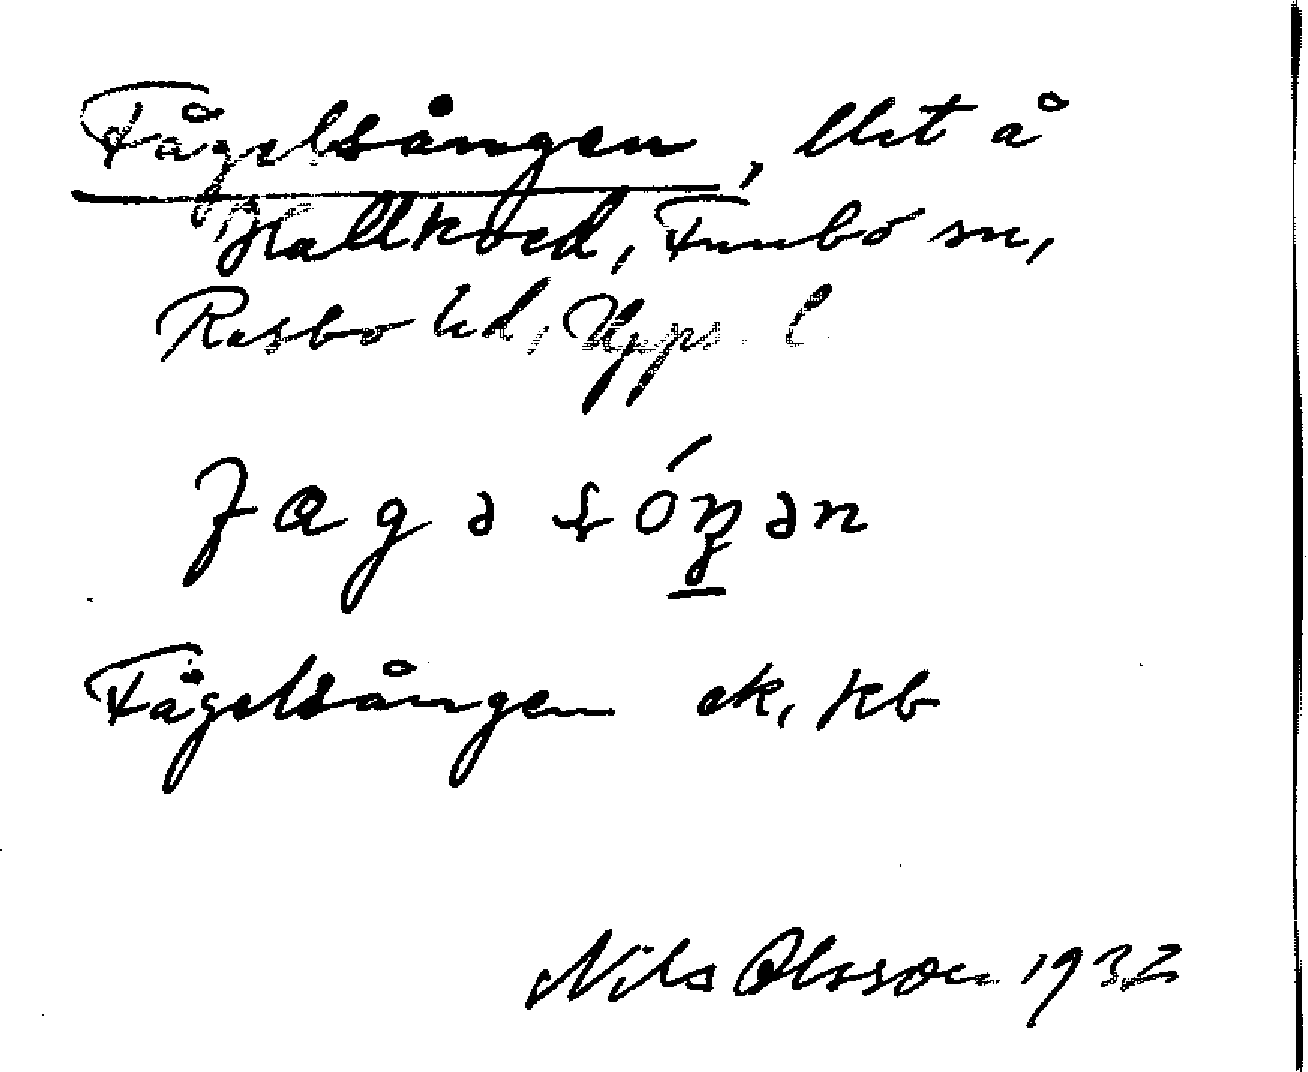 Fågelsången, lht å
Hallkved, Funbo sn,
Rasbo hd, Upps. l.
fagəsóŋən
Fågelsången ek, kb
Nils Olsson 1932